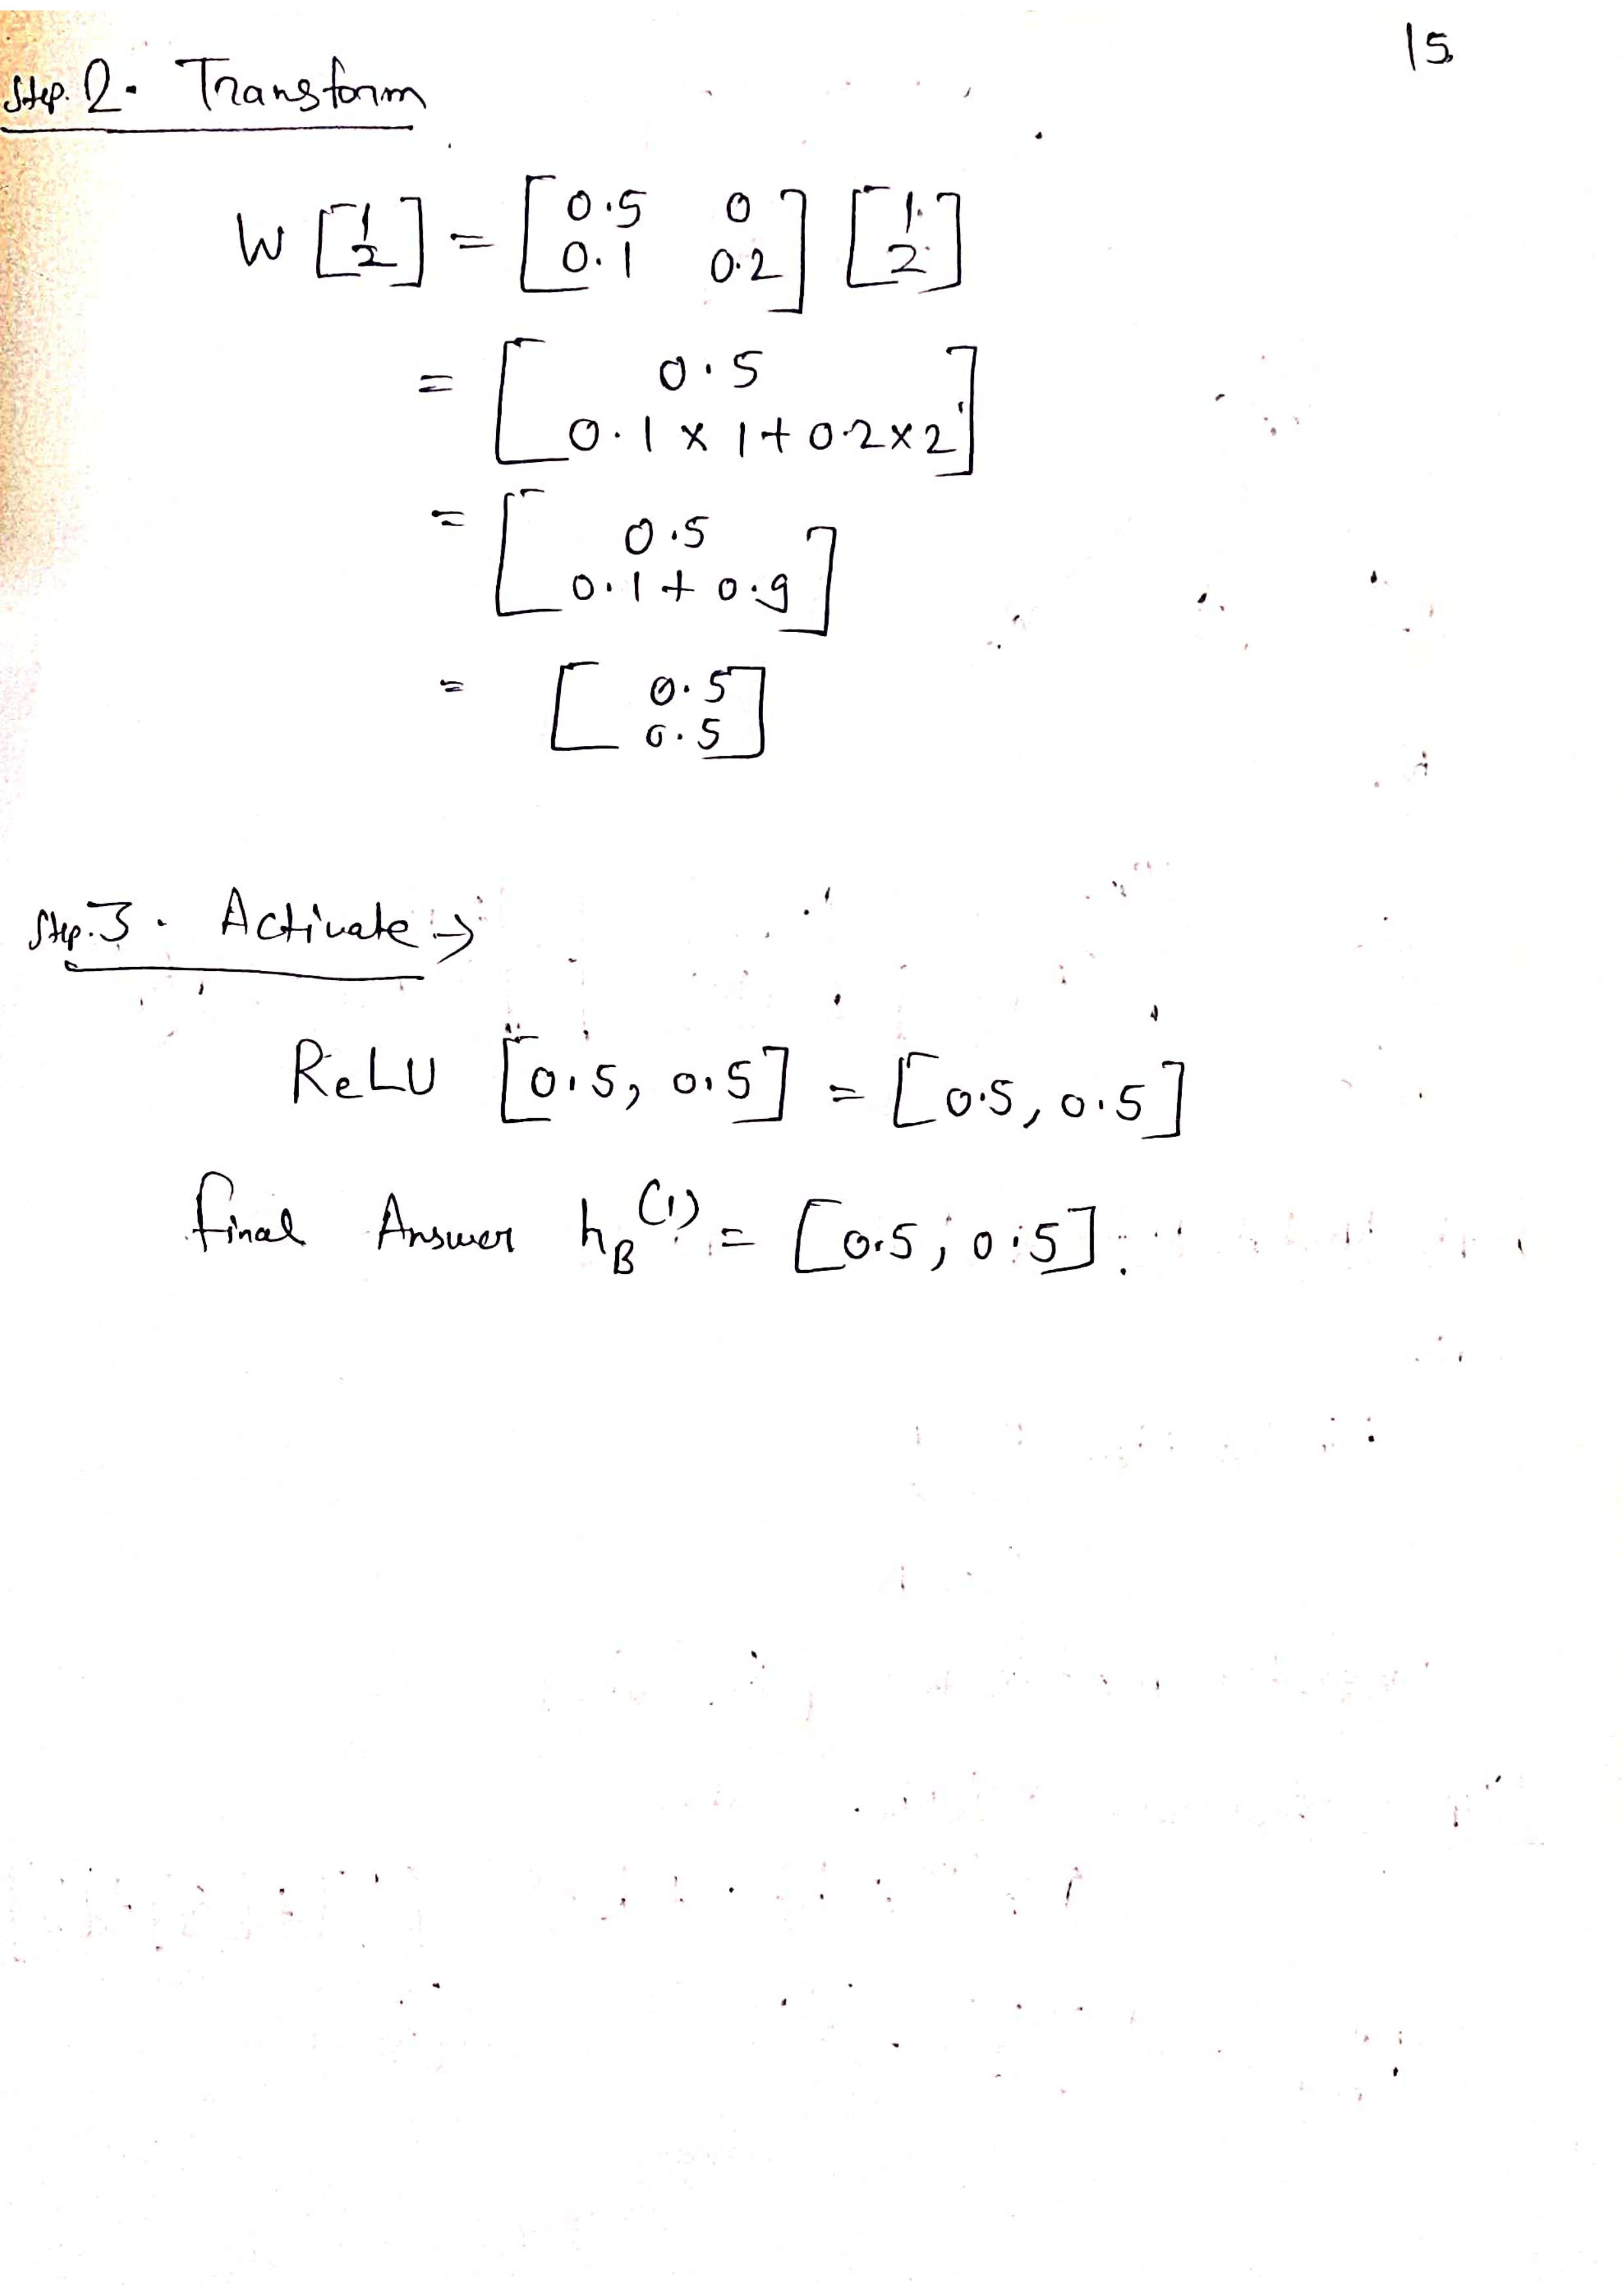 15
Step. 2. Transform
W [1 2] = [0.5 0 0.1 0.2] [1 2]
= [0.5 0.1 x 1 + 0.2 x 2]
= [0.5 0.1 + 0.9]
= [0.5 0.5]
Step. 3. Activate →
ReLU [0.5, 0.5] = [0.5, 0.5]
final Answer h_B^(1) = [0.5, 0.5].